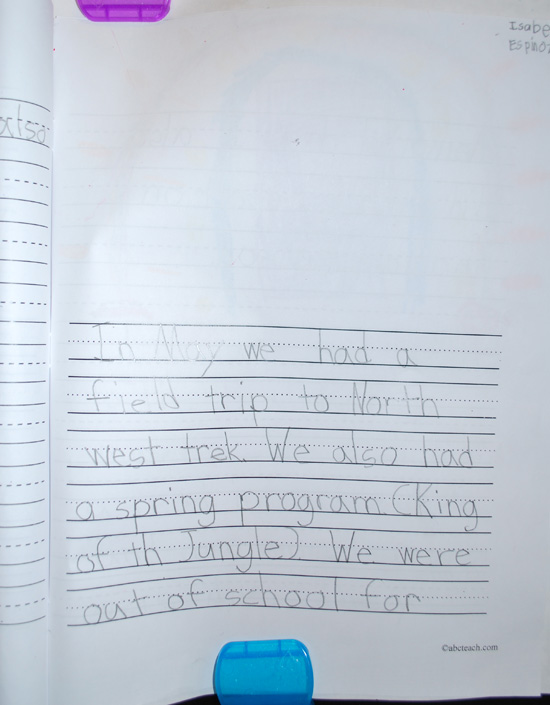 Isabe
Espinoz
xtso
In May we had a
field trip to North
west trek. We also had
a spring program. (King
of th Jungle) We were
out of school for
©abcteach.com